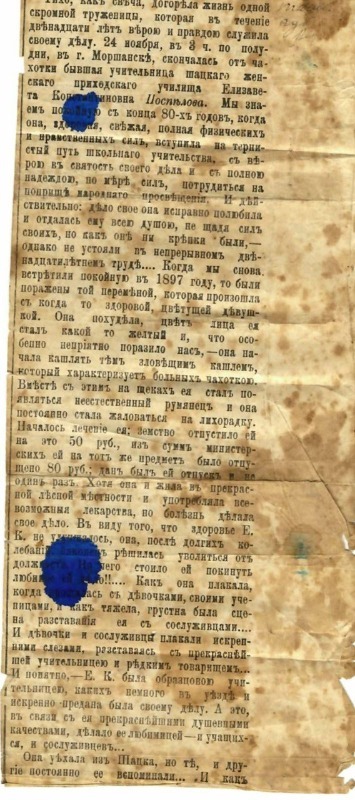 Тихо, какъ свѣча, догорѣла жизнь одной
скромной труженицы, которая въ теченіе
двѣнадцати лѣтъ вѣрою и правдою служила
своему дѣлу. 24 ноября, въ 3 ч. по полу-
дни, въ г. Моршанскѣ, скончалась отъ ча-
хотки бывшая учительница шацкаго жен-
скаго приходскаго училища Елизаве-
та Константиновна Поспѣлова. Мы зна-
емъ покойную съ конца 80-хъ годовъ, когда
она, здоровая, свѣжая, полная физическихъ
и нравственныхъ силъ, вступила на терни-
стый путь школьнаго учительства, съ вѣ-
рою въ святость своего дѣла и съ полною
надеждою, по мѣрѣ силъ, потрудиться на
поприщѣ народнаго просвѣщенія. И дѣй-
ствительно: дѣло свое она исправно полюбила
и отдалась ему всею душою, не щадя силъ
своихъ, но какъ онѣ ни крѣпки были,—
однако не устояли въ непрерывномъ двѣ-
надцатилѣтнемъ трудѣ.... Когда мы снова
встрѣтили покойную въ 1897 году, то были
поражены той перемѣной, которая произошла
съ когда то здоровой, цвѣтущей дѣвуш-
кой. Она похудѣла, цвѣтъ лица ея
сталъ какой то желтый и, что осо-
бенно непріятно поразило насъ,—она на-
чала кашлять тѣмъ зловѣщимъ кашлемъ,
который характеризуетъ больныхъ чахоткою.
Вмѣстѣ съ этимъ на щекахъ ея сталъ по-
являться неестественный румянецъ и она
постоянно стала жаловаться на лихорадку.
Началось леченіе ея; земство отпустило ей
на это 50 руб., изъ суммъ министер-
скихъ ей на тотъ же предметъ было отпу-
щено 80 руб.; данъ былъ ей отпускъ и не
одинъ разъ. Хотя она и жила въ прекрас-
ной лѣсной мѣстности и употребляла все-
возможныя лекарства, но болѣзнь дѣлала
свое дѣло. Въ виду того, что здоровье Е.
К. не улучшалось, она, послѣ долгихъ ко-
лебаній, рѣшилась уволиться отъ
должности. Чего стоило ей покинуть
любимое дѣло!!.... Какъ она плакала,
когда прощалась съ дѣвочками, своими уче-
ницами, и какъ тяжела, грустна была сце-
на разставанія ея съ сослуживцами....
И дѣвочки и сослуживцы плакали искрен-
ними слезами, разставаясь съ прекраснѣй-
шей учительницею и рѣдкимъ товарищемъ...
И понятно.—Е. К. была образцовою учи-
тельницею, какихъ немного въ уѣздѣ и
искренно предана была своему дѣлу. А это,
въ связи съ ея прекраснѣйшими душевными
качествами, дѣлало ее любимицей—и учащих-
ся, и сослуживцевъ...
Она уѣхала изъ Шацка, но тѣ, и дру-
гіе постоянно ее вспоминали... .И какъ